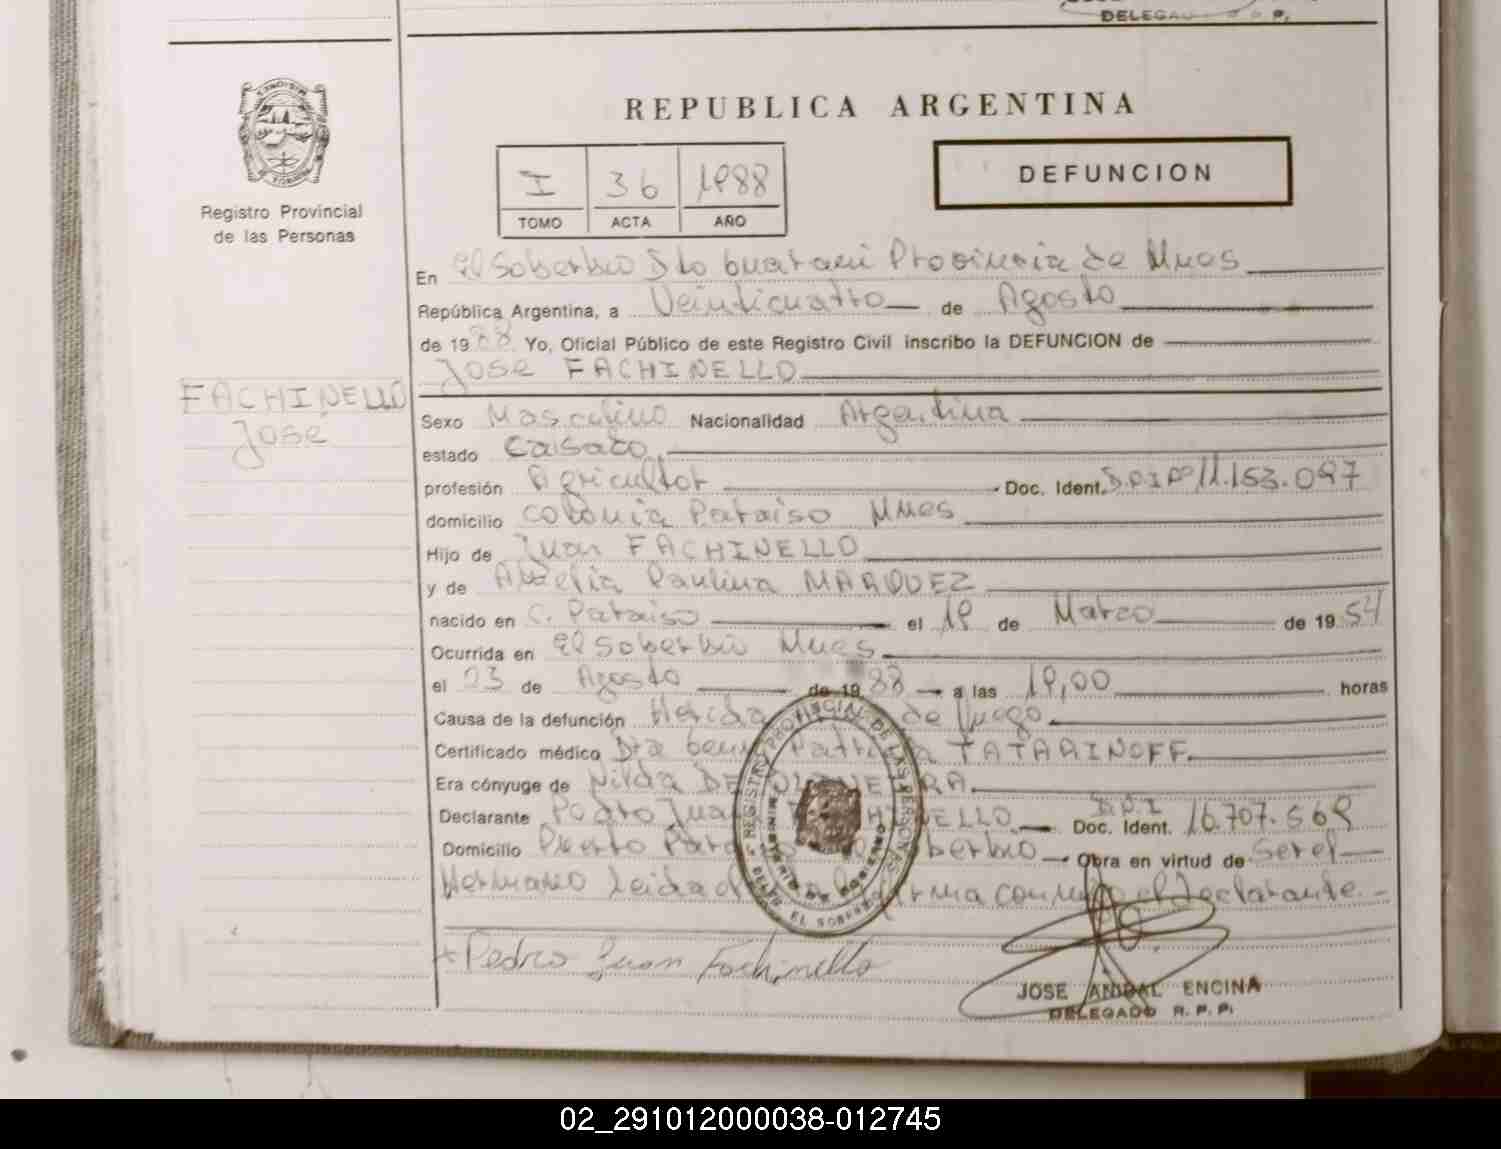 DELEGADO R. P. P.
REPUBLICA ARGENTINA
I 36 1988
TOMO ACTA AÑO
DEFUNCION
Registro Provincial
de las Personas
En El Soberbio Dto Guarani Provincia de Mnes
República Argentina, a Veinticuatro de Agosto
de 1988 Yo, Oficial Público de este Registro Civil inscribo la DEFUNCION de
Jose FACHINELLO
FACHINELLO
Jose
Sexo Masculino Nacionalidad Argentina
estado Casado
profesión Agricultor Doc. Ident. D.N.I Nº 11.153.097
domicilio Colonia Paraiso Mnes
Hijo de Juan FACHINELLO
y de Paulina MARQUEZ
nacido en C. Paraiso el 19 de Marzo de 1954
Ocurrida en El Soberbio Mnes
el 23 de Agosto de 1988 a las 19,00 horas
Causa de la defunción Herida de fuego
Certificado médico Dra TATARINOFF
Era cónyuge de Nilda DE
Declarante Pedro Juan FACHINELLO D.N.I Doc. Ident. 16.707.569
Domicilio Puerto Soberbio Obra en virtud de Ser el
Hermano Leida el firma conmigo el Declarante.-
REGISTRO PROVINCIAL DE LAS PERSONAS
MINISTERIO DE GOBIERNO
DELEG. EL SOBERBIO
Pedro Juan Fachinello
JOSE ANIBAL ENCINA
DELEGADO R. P. P.
02_291012000038-012745